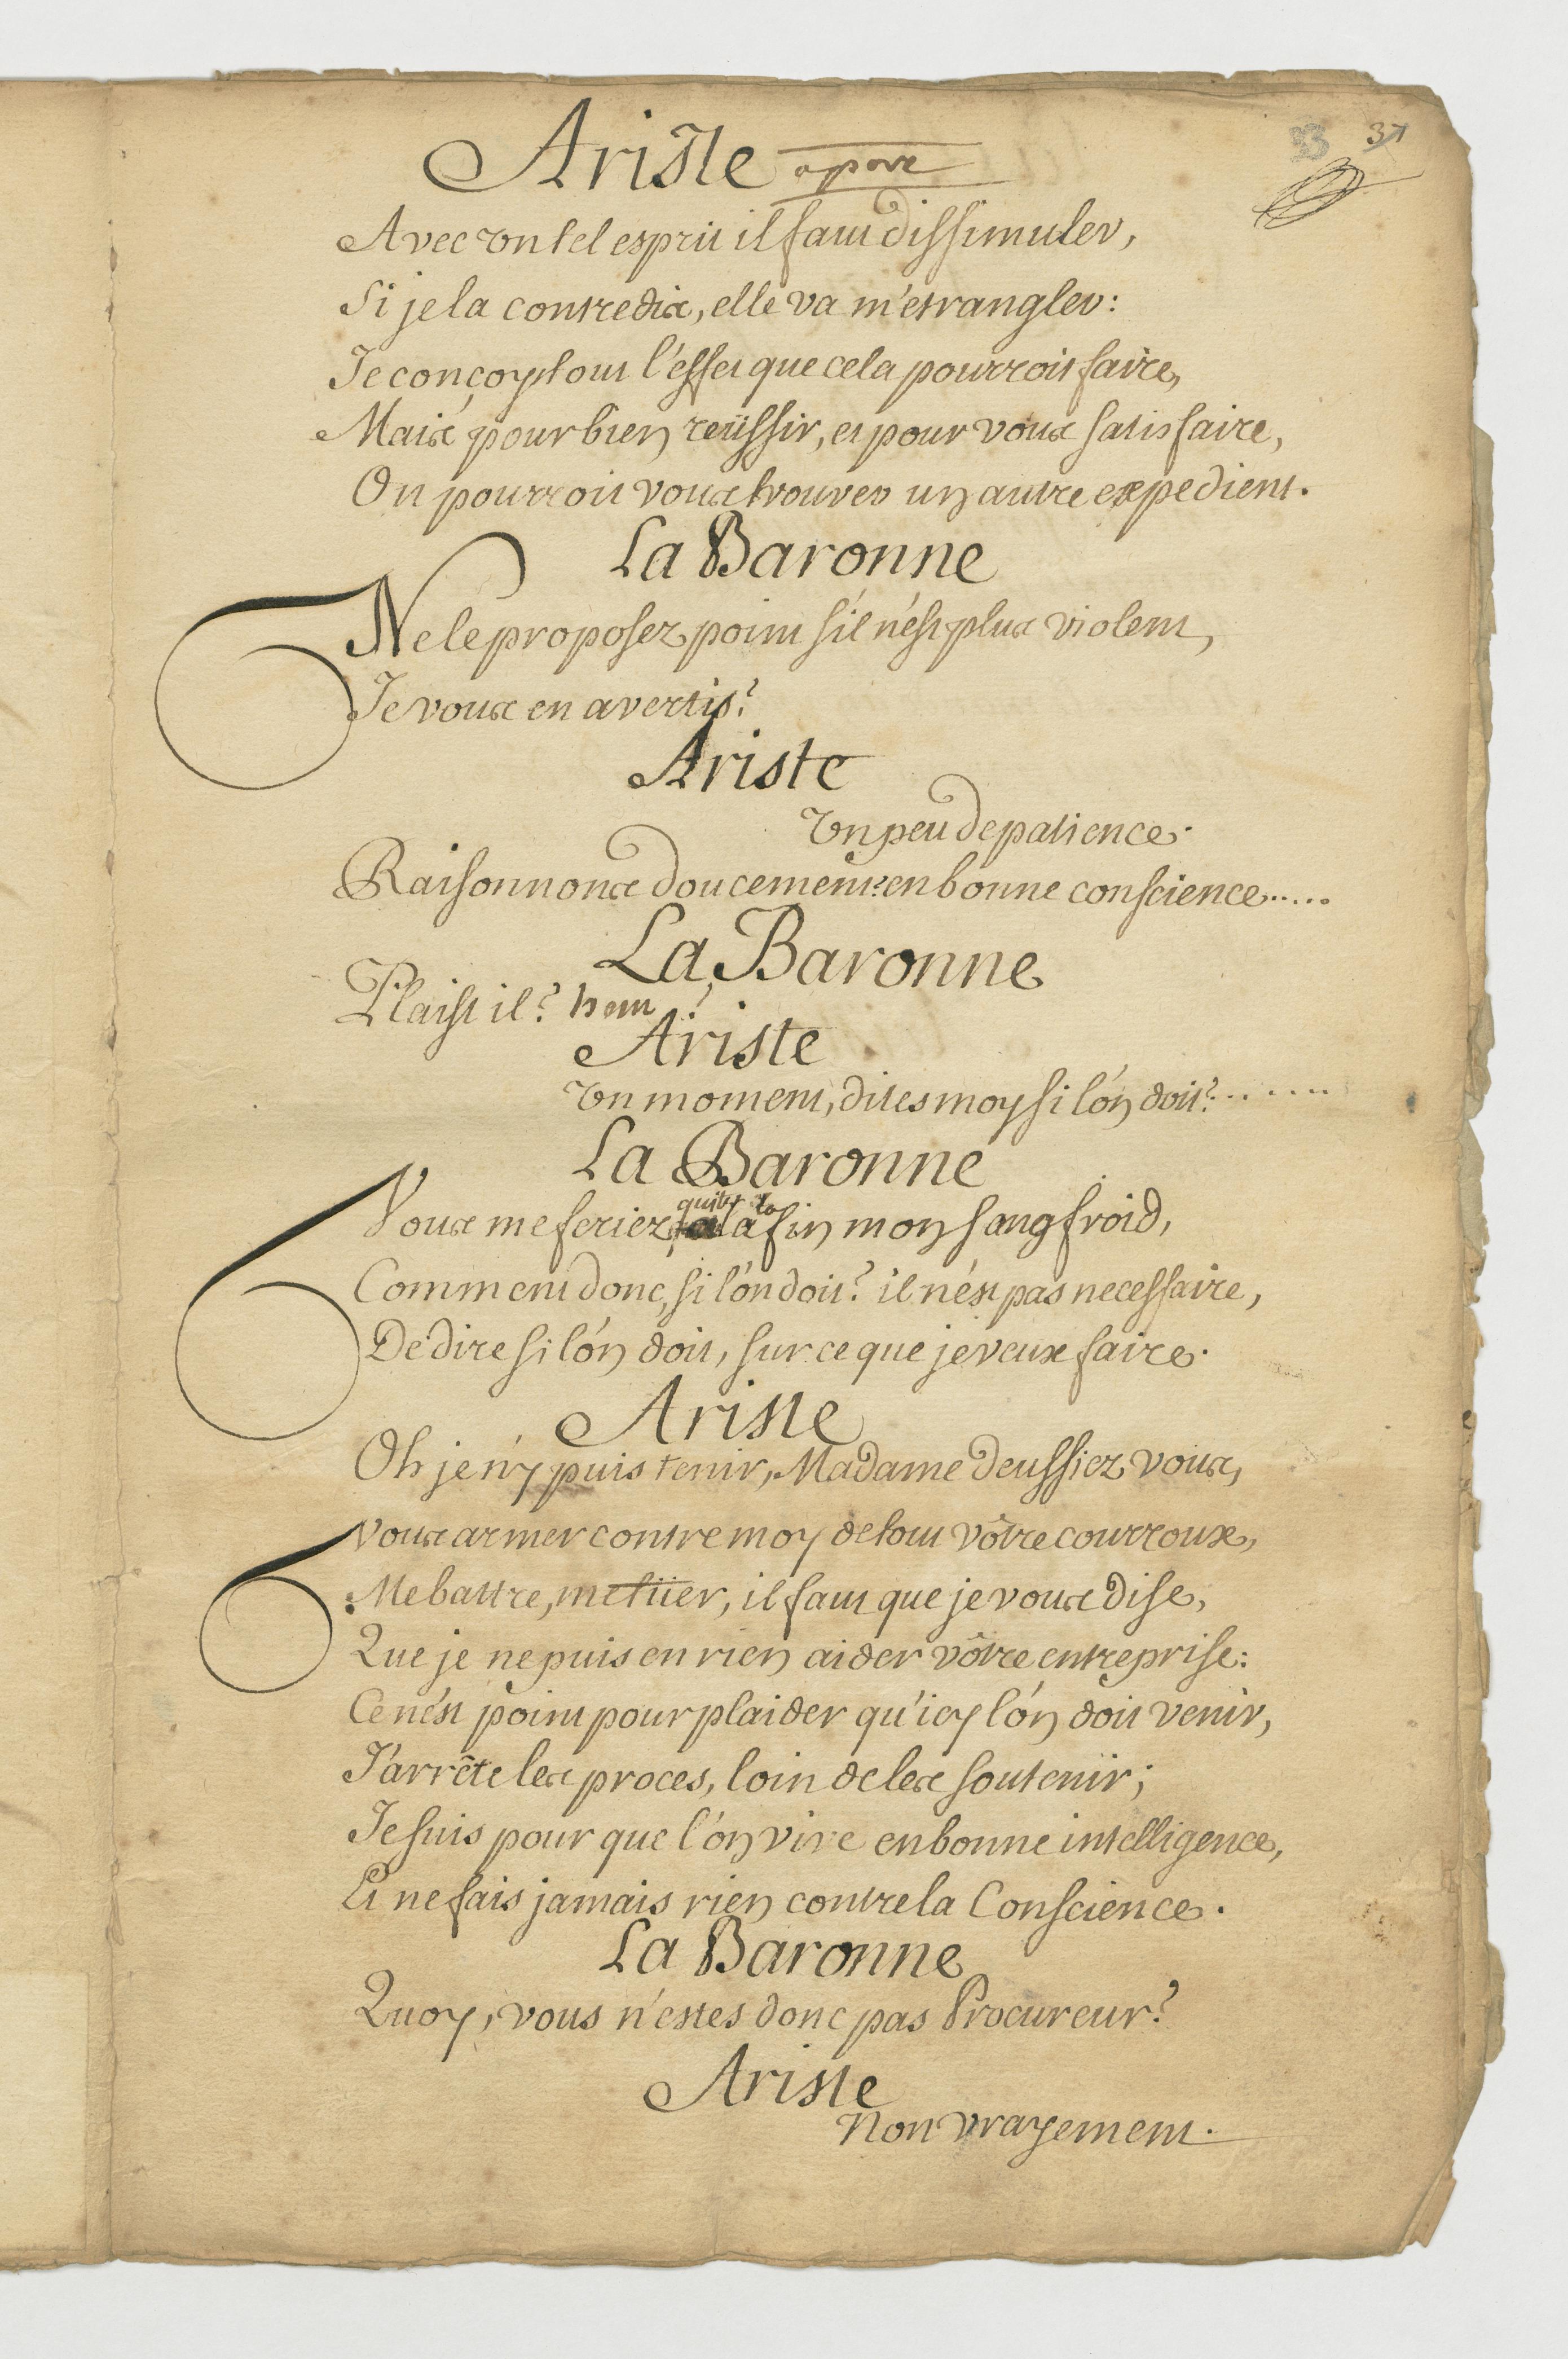 37
Ariste a part
Avec un tel esprit il faut dissimuler,
Si je la contredis, elle va m'estrangler:
Je conçoy tout l'effet que cela pourroit faire,
Mais pour bien reüssir, et pour vous satisfaire,
On pourroit vous trouver un autre expedient.
La Baronne
Ne le proposez point s'il n'est plus violent,
Je vous en avertis?
Ariste
Un peu de patience.
Raisonnons doucement: en bonne conscience.....
La Baronne
Plaist il? hem?
Ariste
Un moment, dites moy si l'on doit?.......
La Baronne
quitter
Vous me feriez à la fin mon sang froid,
Comment donc, si l'on doit? il n'est pas necessaire,
De dire si l'on doit, sur ce que je veux faire.
Ariste
Oh je n'y puis tenir, Madame deussiez vous,
Vous armer contre moy de tout vôtre courroux,
Me battre, me tüer, il faut que je vous dise,
Que je ne puis en rien aider vôtre entreprise:
Ce n'est point pour plaider qu'icy l'on doit venir,
J'arrête les proces, loin de les soutenir;
Je suis pour que l'on vive en bonne intelligence,
Et ne fais jamais rien contre la Conscience.
La Baronne
Quoy, vous n'estes donc pas Procureur?
Ariste
Non vrayement.